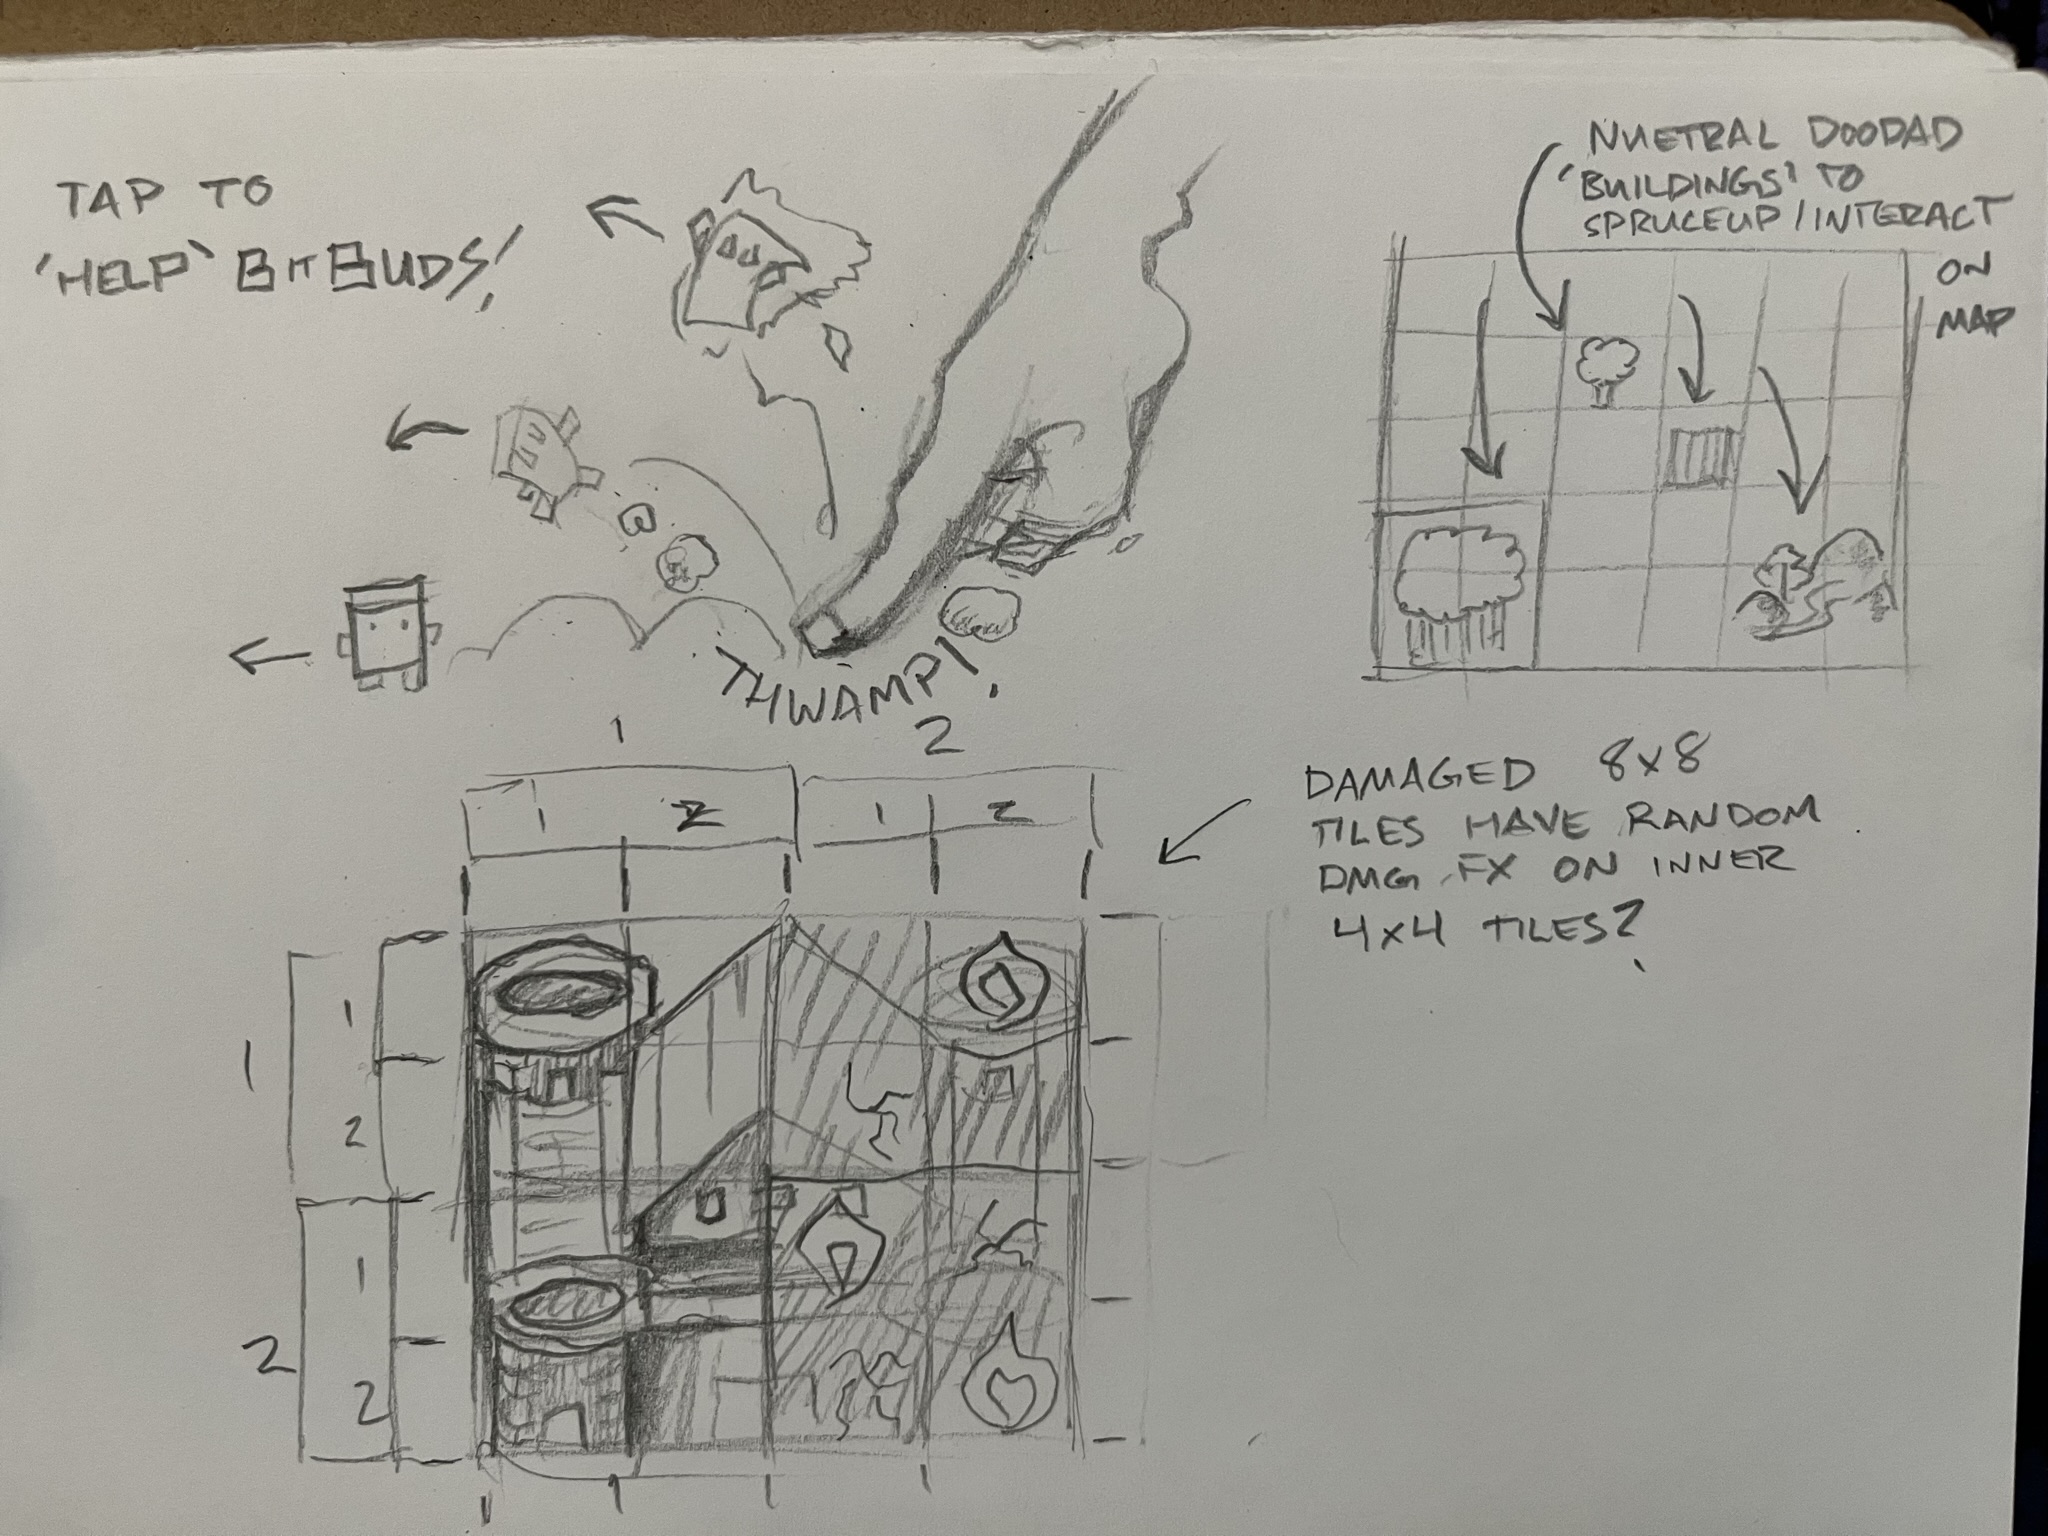 TAP TO
'HELP' BITBUDS!
NUETRAL DOODAD
'BUILDINGS' TO
SPRUCEUP / INTERACT
ON
MAP
THWAMP!
1 2
1 2 1 2
DAMAGED 8x8
TILES HAVE RANDOM
DMG FX ON INNER
4x4 TILES?
1
1
2
1
2
2